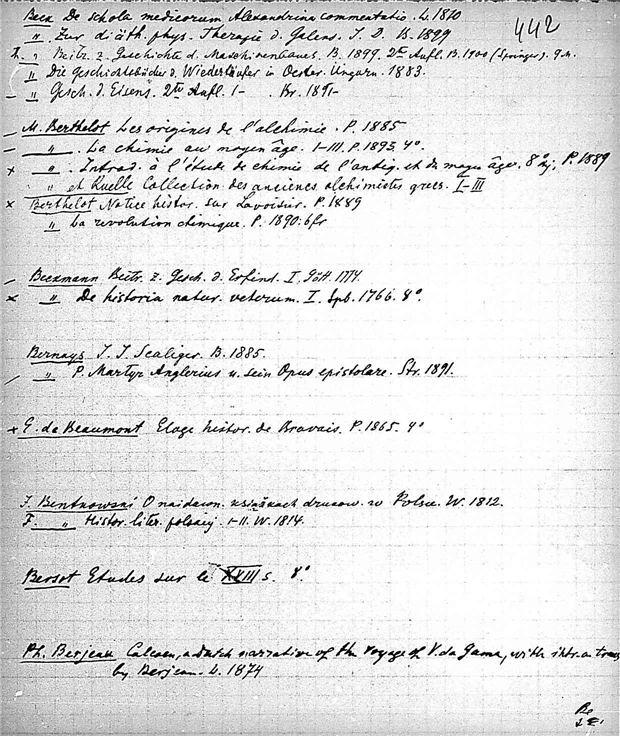 Beck De schola medicorum Alexandrina commentatio. L. 1810
442
" Zur diäth. phys. Therapie d. Galens. I. D. B. 1899
Th. " Beitr. z. Geschichte d. Maschinenbaues. B. 1899. 2te Aufl. B. 1900 (Springer). 9 m.
" Die Geschichtsbücher d. Wiedertäufer in Oester. Ungarn. 1883.
— " Gesch. d. Eisens. 2te Aufl. I- Br. 1891-
— M. Berthelot Les origines de l'alchimie. P. 1885
— " La chimie au moyen âge. I-III. P. 1893. 4°.
x " Introd. à l'étude de chimie de l'antiq. et du moyen âge. 8° P. 1889
" et Ruelle Collection des anciens alchimistes grecs. I-III
x Berthelot Notice histor. sur Lavoisier. P. 1889
" La revolution chimique. P. 1890. 6 fr
— Beckmann Beitr. z. Gesch. d. Erfind. I. Gött. 1774.
x " De historia natur. veterum. I. Spb. 1766. 8°.
Bernays J. J. Scaliger. B. 1885.
— " P. Martyr Anglerius u. sein Opus epistolare. Str. 1891.
x E. de Beaumont Eloge histor. de Bravais. P. 1865. 4°
J. Bentkowski O naidawn. książkach drukow. w Polsce. W. 1812.
F. " Histor. liter. polskiej. I-II. W. 1814.
Bersot Etudes sur le XVIII s. 8°.
Ph. Berjeau Calcoen, a dutch narrative of the voyage of V. da Gama, with intr. a trans
by Berjeau. L. 1874
Be